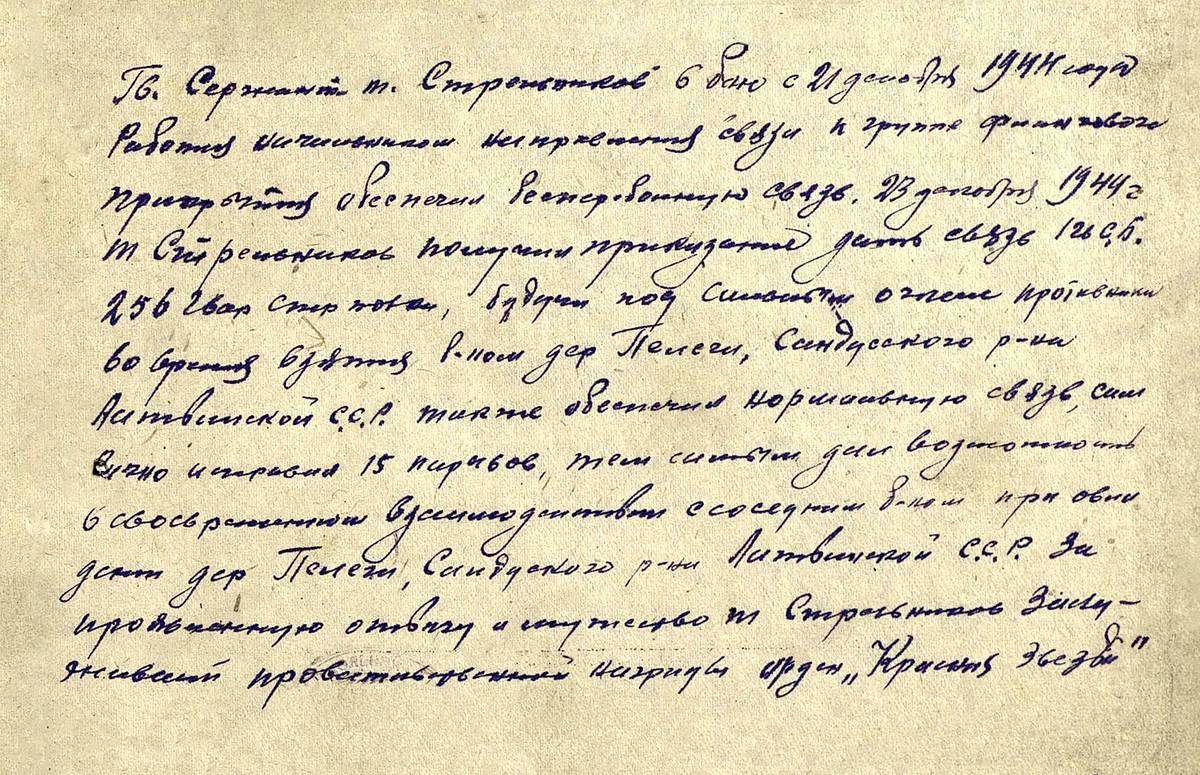 Гв. Сержант т. Стрельников в бою с 21 декабря 1944 года
Работая начальником направления связи в группе флангового
прикрытия обеспечил бесперебойную связь. 23 декабря 1944 г
т Стрельников получил приказание дать связь 1му С.Б.
256 Гвар стр полка, будучи под сильным огнем противника
во время взятия б-ном дер Пелеги, Сандусского р-на
Латвийской С.С.Р. также обеспечил нормальную связь, сам
лично исправил 15 порывов, тем самым дал возможность
в своевременном взаимодействии с соседним б-ном при овла
дении дер Пелеги, Сандуского р-на Латвийской С.С.Р. За
проявленную отвагу и мужество т Стрельников Заслу-
живает правительственной награды орден „Красная Звезда"